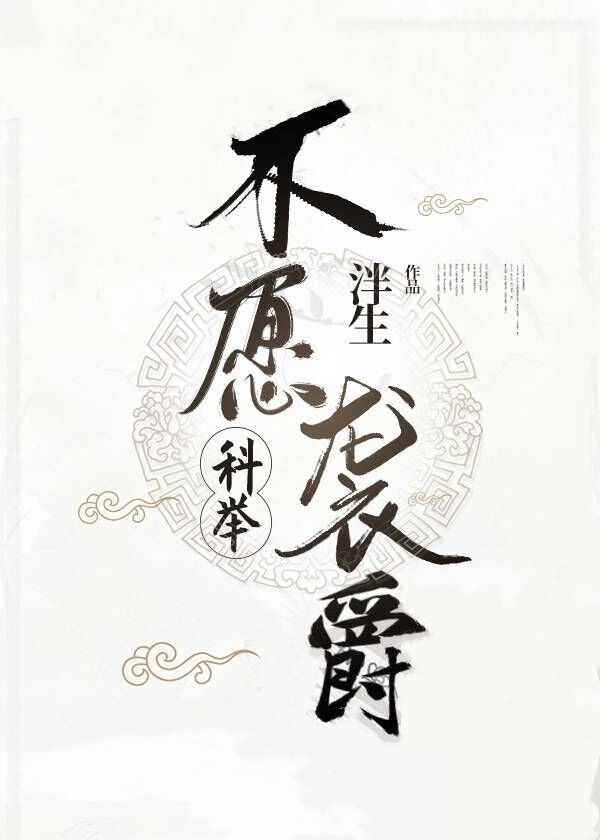 不愿袭爵
科举
泮生
作品